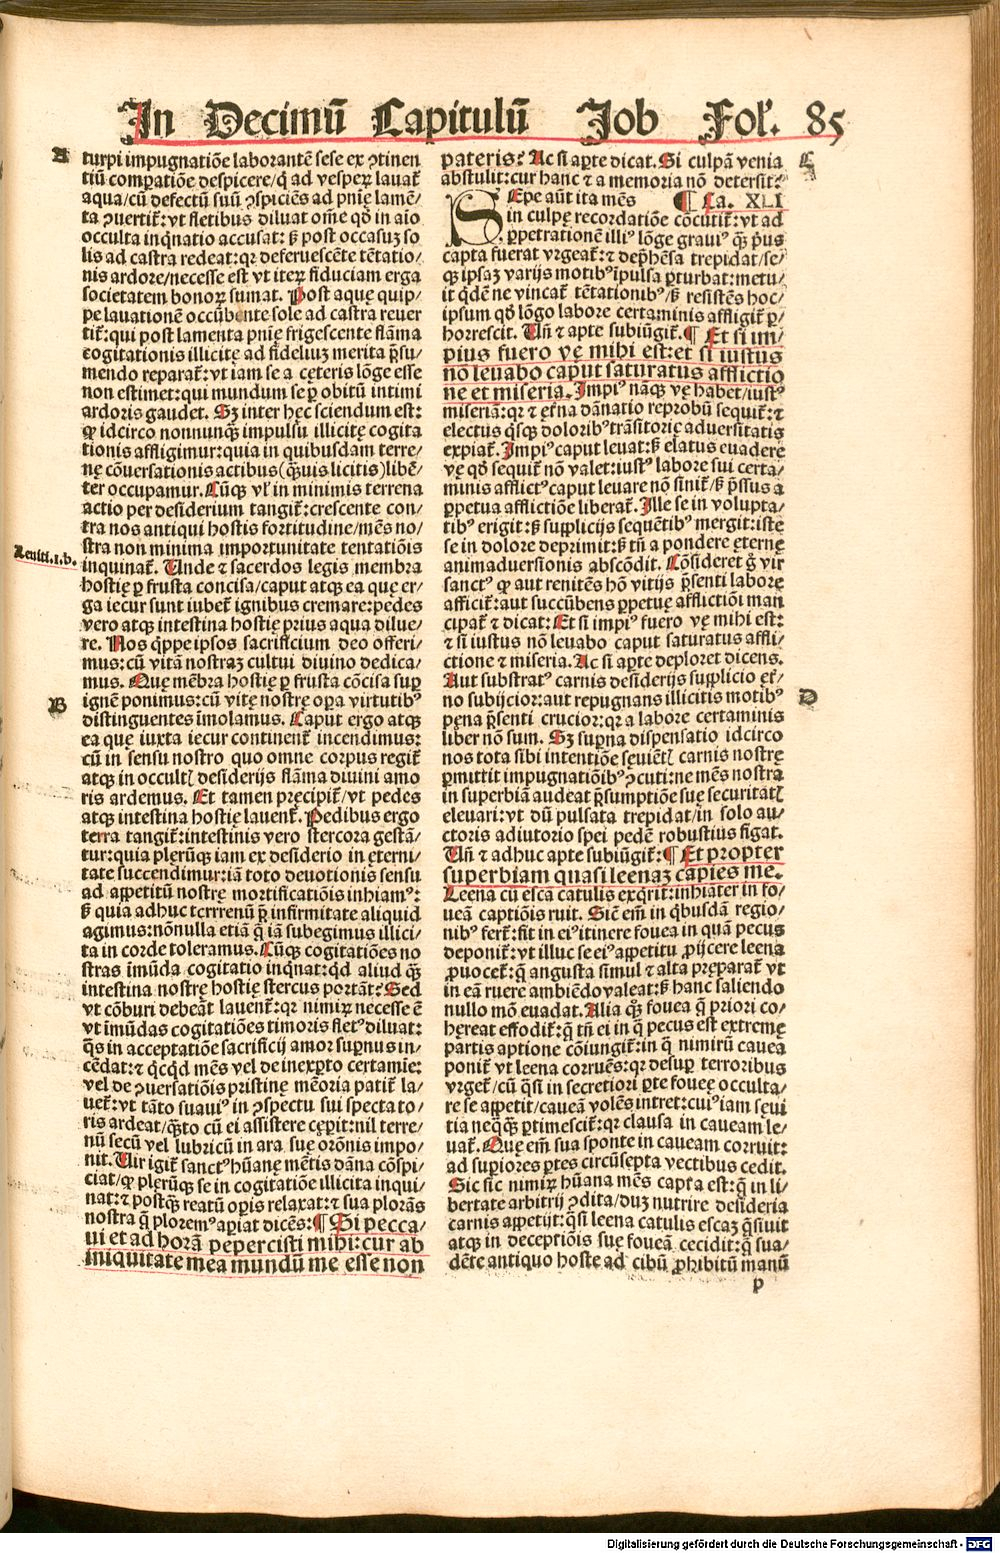 In Decimū Capitulū Job Fol. 85
A
turpi impugnatiōe laborantē sese ex ꝯtinen
tiū comꝑatiōe despicere/q̇ ad vesperꝫ lauat᷑
aqua/cū defectū suū ꝯspiciēs ad pnīę lamē/
ta ꝯuertit᷑: vt fletibus diluat om̄e qd̄ in aīo
occulta inq̇natio accusat: ß post occasuꝫ so
lis ad castra redeat: qꝛ deferuescēte tētatio/
nis ardore/necesse est vt iterꝫ fiduciam erga
societatem bonorꝫ sumat. Post aquę quip/
pe lauationem occūbente sole ad castra reuer
tit᷑: qui post lamenta pnīę frigescente flāma
cogitationis illicitę ad fideliuꝫ merita p̄su/
mendo reparat᷑: vt iam se a cęteris lōge esse
non estimet: qui mundum se ꝑ obitū intimi
ardoris gaudet. Sꝫ inter hęc sciendum est:
ꝙ idcirco nonnunqȝ impulsu illicitę cogita
tionis affligimur: quia in quibusdam terre/
nę cōuersationis actibus (q̄uis licitis) libē/
ter occupamur. Cūqꝫ vl᷑ in minimis terrena
actio per desiderium tangit᷑: crescente con/
tra nos antiqui hostis fortitudine/mēs no/
stra non minima importunitate tentatiōis
Leuiti.1.b.
inquinat᷑. Unde ⁊ sacerdos legis membra
hostię ꝑ frusta concisa/caput atqꝫ ea quę er/
ga iecur sunt iubet᷑ ignibus cremare: pedes
vero atqꝫ intestina hostię prius aqua dilue/
re. Nos q̇ppe ipsos sacrificium deo offeri/
mus: cū vitā nostraꝫ cultui diuino dedica/
mus. Quę mēbra hostię ꝑ frusta cōcisa suꝑ
B
ignē ponimus: cū vitę nostrę oꝑa virtutibꝰ
distinguentes īmolamus. Caput ergo atqꝫ
ea quę iuxta iecur continent᷑ incendimus:
cū in sensu nostro quo omne corpus regit᷑
atqꝫ in occultꝭ desiderijs flāma diuini amo
ris ardemus. Et tamen pręcipit᷑/vt pedes
atqꝫ intestina hostię lauent᷑. Pedibus ergo
terra tangit᷑: intestinis vero stercora gestā/
tur: quia plęrūqꝫ iam ex desiderio in ęterni/
tate succendimur: iā toto deuotionis sensu
ad appetitū nostrę mortificatiōis inhiamꝰ:
ß quia adhuc terrenū p̄ infirmitate aliquid
agimus: nōnulla etiā q̄ iā subegimus illici/
ta in corde toleramus. Cūqꝫ cogitatiōes no
stras imūda cogitatio inq̇nat: qd̄ aliud qȝ
intestina nostrę hostię stercus portāt? Sed
vt cōburi debeāt lauent᷑: qꝛ nimirꝫ necesse ē
vt īmūdas cogitatiōes timoris fletꝰ diluat:
q̄s in acceptatiōe sacrificij amor suꝑnus in/
cēdat: ⁊ q̇cqd̄ mēs vel de inexꝑto certamie:
vel de ꝯuersatiōis pristinę mēoria patit᷑ la/
uet᷑: vt tāto suauiꝰ in ꝯspectu sui spectato/
ris ardeat/q̄sto cū ei assistere cęperit: nil terre/
nū secū vel lubricū in ara suę orōnis impo/
nit. Uir igit᷑ sanctꝰ hūanę mētis dāna cōspi/
ciat/ꝙ plęrūqꝫ se in cogitatiōe illicita inqui/
nat: ⁊ postqȝ reatū oꝑis relaxat: ⁊ sua plorās
nostra q̄ ploremꝰ aꝑiat dicēs: ¶ Si pecca/
ui et ad horā pepercisti mihi: cur ab
iniquitate mea mundū me esse non
pateris? Ac si aꝑte dicat. Si culpā venia
C
abstulit: cur hanc ⁊ a memoria nō detersit?
SEpe aūt ita mēs ¶ Ca. XLI
in culpę recordatiōe cōcutit᷑: vt ad
ꝑpetrationēm illiꝰ lōge grauiꝰ qȝ pꝰus
capta fuerat vrgeat᷑: ⁊ dep̄hēsa trepidat/se/
qꝫ ipsaꝫ varijs motibꝰ īpulsa ꝑturbat: metu/
it q̇dē ne vincat᷑ tētationibꝰ/ß resistēs hoc/
ipsum qd̄ lōgo labore certaminis affligit᷑ ꝑ/
horrescit. Un̄ ⁊ apte subiūgit᷑. ¶ Et si im/
pius fuero vę mihi est: et si iustus
nō leuabo caput saturatus afflictio
ne et miseria. Impiꝰ nāqꝫ vę habet/iustꝰ
miseriā: qꝛ ⁊ ęt̄na dānatio reprobū sequit᷑: ⁊
electus q̇sqꝫ doloribꝰ trāsitorię aduersitatis
expiat᷑. Impiꝰ caput leuat: ß elatus euadere
vę qd̄ sequit᷑ nō valet: iustꝰ labore sui certa/
minis afflictꝰ caput leuare nō sinit᷑/ß p̄ssus a
ꝑpetua afflictiōe liberat᷑. Ille se in volupta/
tibꝰ erigit: ß supplicijs sequētibꝰ mergit: iste
se in dolore deprimit: ß tn̄ a pondere ęternę
animaduersionis abscōdit. Cōsideret ḡ vir
sanctꝰ ꝙ aut renitēs hōi vitijs p̄senti labore
afficit᷑: aut succūbens ꝑpetuę afflictiōi man
cipat᷑ ⁊ dicat: Et si impiꝰ fuero vę mihi est:
⁊ si iustus nō leuabo caput saturatus affli/
ctione ⁊ miseria. Ac si aꝑte deploret dicens.
Aut substratꝰ carnis desiderijs supplicio ęt᷑/
D
no subijcior: aut repugnans illicitis motibꝰ
pęna p̄senti crucior: qꝛ a labore certaminis
liber nō sum. Sꝫ suꝑna dispensatio idcirco
nos tota sibi intentiōe sęuiētꝭ carnis nostrę
ꝑmittit impugnatiōibꝰ ꝯcuti: ne mēs nostra
in superbiā audeat p̄sumptiōe suę securitatꝭ
eleuari: vt dū pulsata trepidat/in solo au/
ctoris adiutorio spei pedē robustius figat.
Un̄ ⁊ adhuc apte subiūgit᷑: ¶ Et propter
superbiam quasi leenaꝫ capies me.
Leena cū esca catulis exq̇rit: inhiāter in fo/
ueā captiōis ruit. Sic em̄ in q̇busdā regio/
nibꝰ fert᷑: fit in eiꝰ itinere fouea in quā pecus
deponit᷑: vt illuc se eiꝰ appetitu ꝓijcere leena
ꝓuocet᷑: q̄ angusta simul ⁊ alta pręparat᷑ vt
in eā ruere ambiēdo valeat: ß hanc saliendo
nullo mō euadat. Alia qȝ fouea q̄ priori co/
hęreat effodit᷑: q̄ tn̄ ei in q̄ pecus est extremę
partis aptione cōiungit᷑: in q̄ nimirū cauea
ponit᷑ vt leena corruēs: qꝛ desuꝑ terroribus
vrget᷑/cū q̄si in secretiori ꝑte fouee occulta/
re se appetit/caueā volēs intret: cuiꝰ iam seui
tia neqȝqȝ ꝑtimescit᷑: qꝛ clausa in caueam le/
uat᷑. Quę em̄ sua sponte in caueam corruit:
ad suꝑiores ꝑtes circūsepta vectibus cedit.
Sic sic nimirꝫ hūana mēs capta est: q̄ in li/
bertate arbitrij ꝯdita/duꝫ nutrire desideria
carnis appetijt: q̄si leena catulis escaꝫ q̄siuit
atqꝫ in deceptiōis suę foueā cecidit: q̄ sua/
dēte antiquo hoste ad cibū ꝓhibitū manū
p
Digitalisierung gefördert durch die Deutsche Forschungsgemeinschaft - DFG